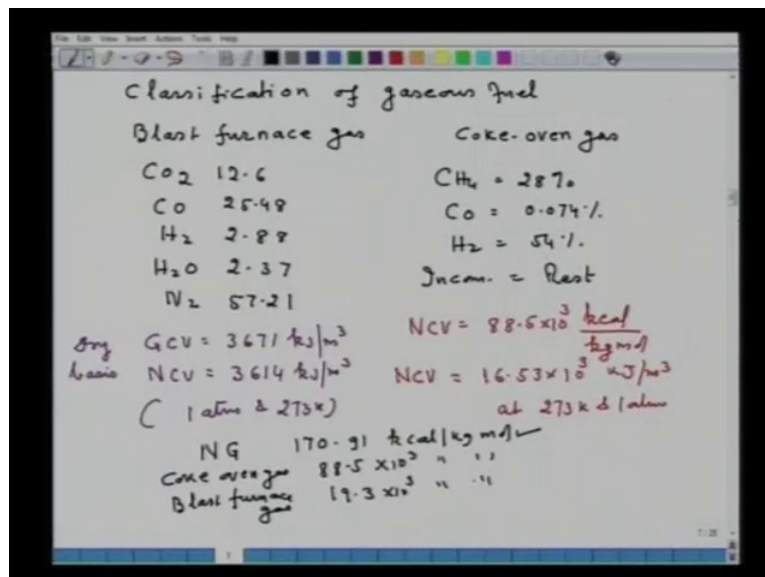 File Edit View Insert Actions Tools Help
Classification of gaseous fuel
Blast furnace gas
CO2 12.6
CO 25.48
H2 2.88
H2O 2.37
N2 57.21
Dry basis
GCV = 3671 kJ/m³
NCV = 3614 kJ/m³
( 1 atm & 273K)
Coke-oven gas
CH4 = 28%
CO = 0.074%
H2 = 54%
Incom. = Rest
NCV = 88.5×10³ kcal/kgmol
NCV = 16.53×10³ kJ/m³
at 273K & 1 atm
NG 170.91 kcal/kg mol
Coke oven gas 88.5×10³ " "
Blast furnace gas 19.3×10³ " "
7/25
7